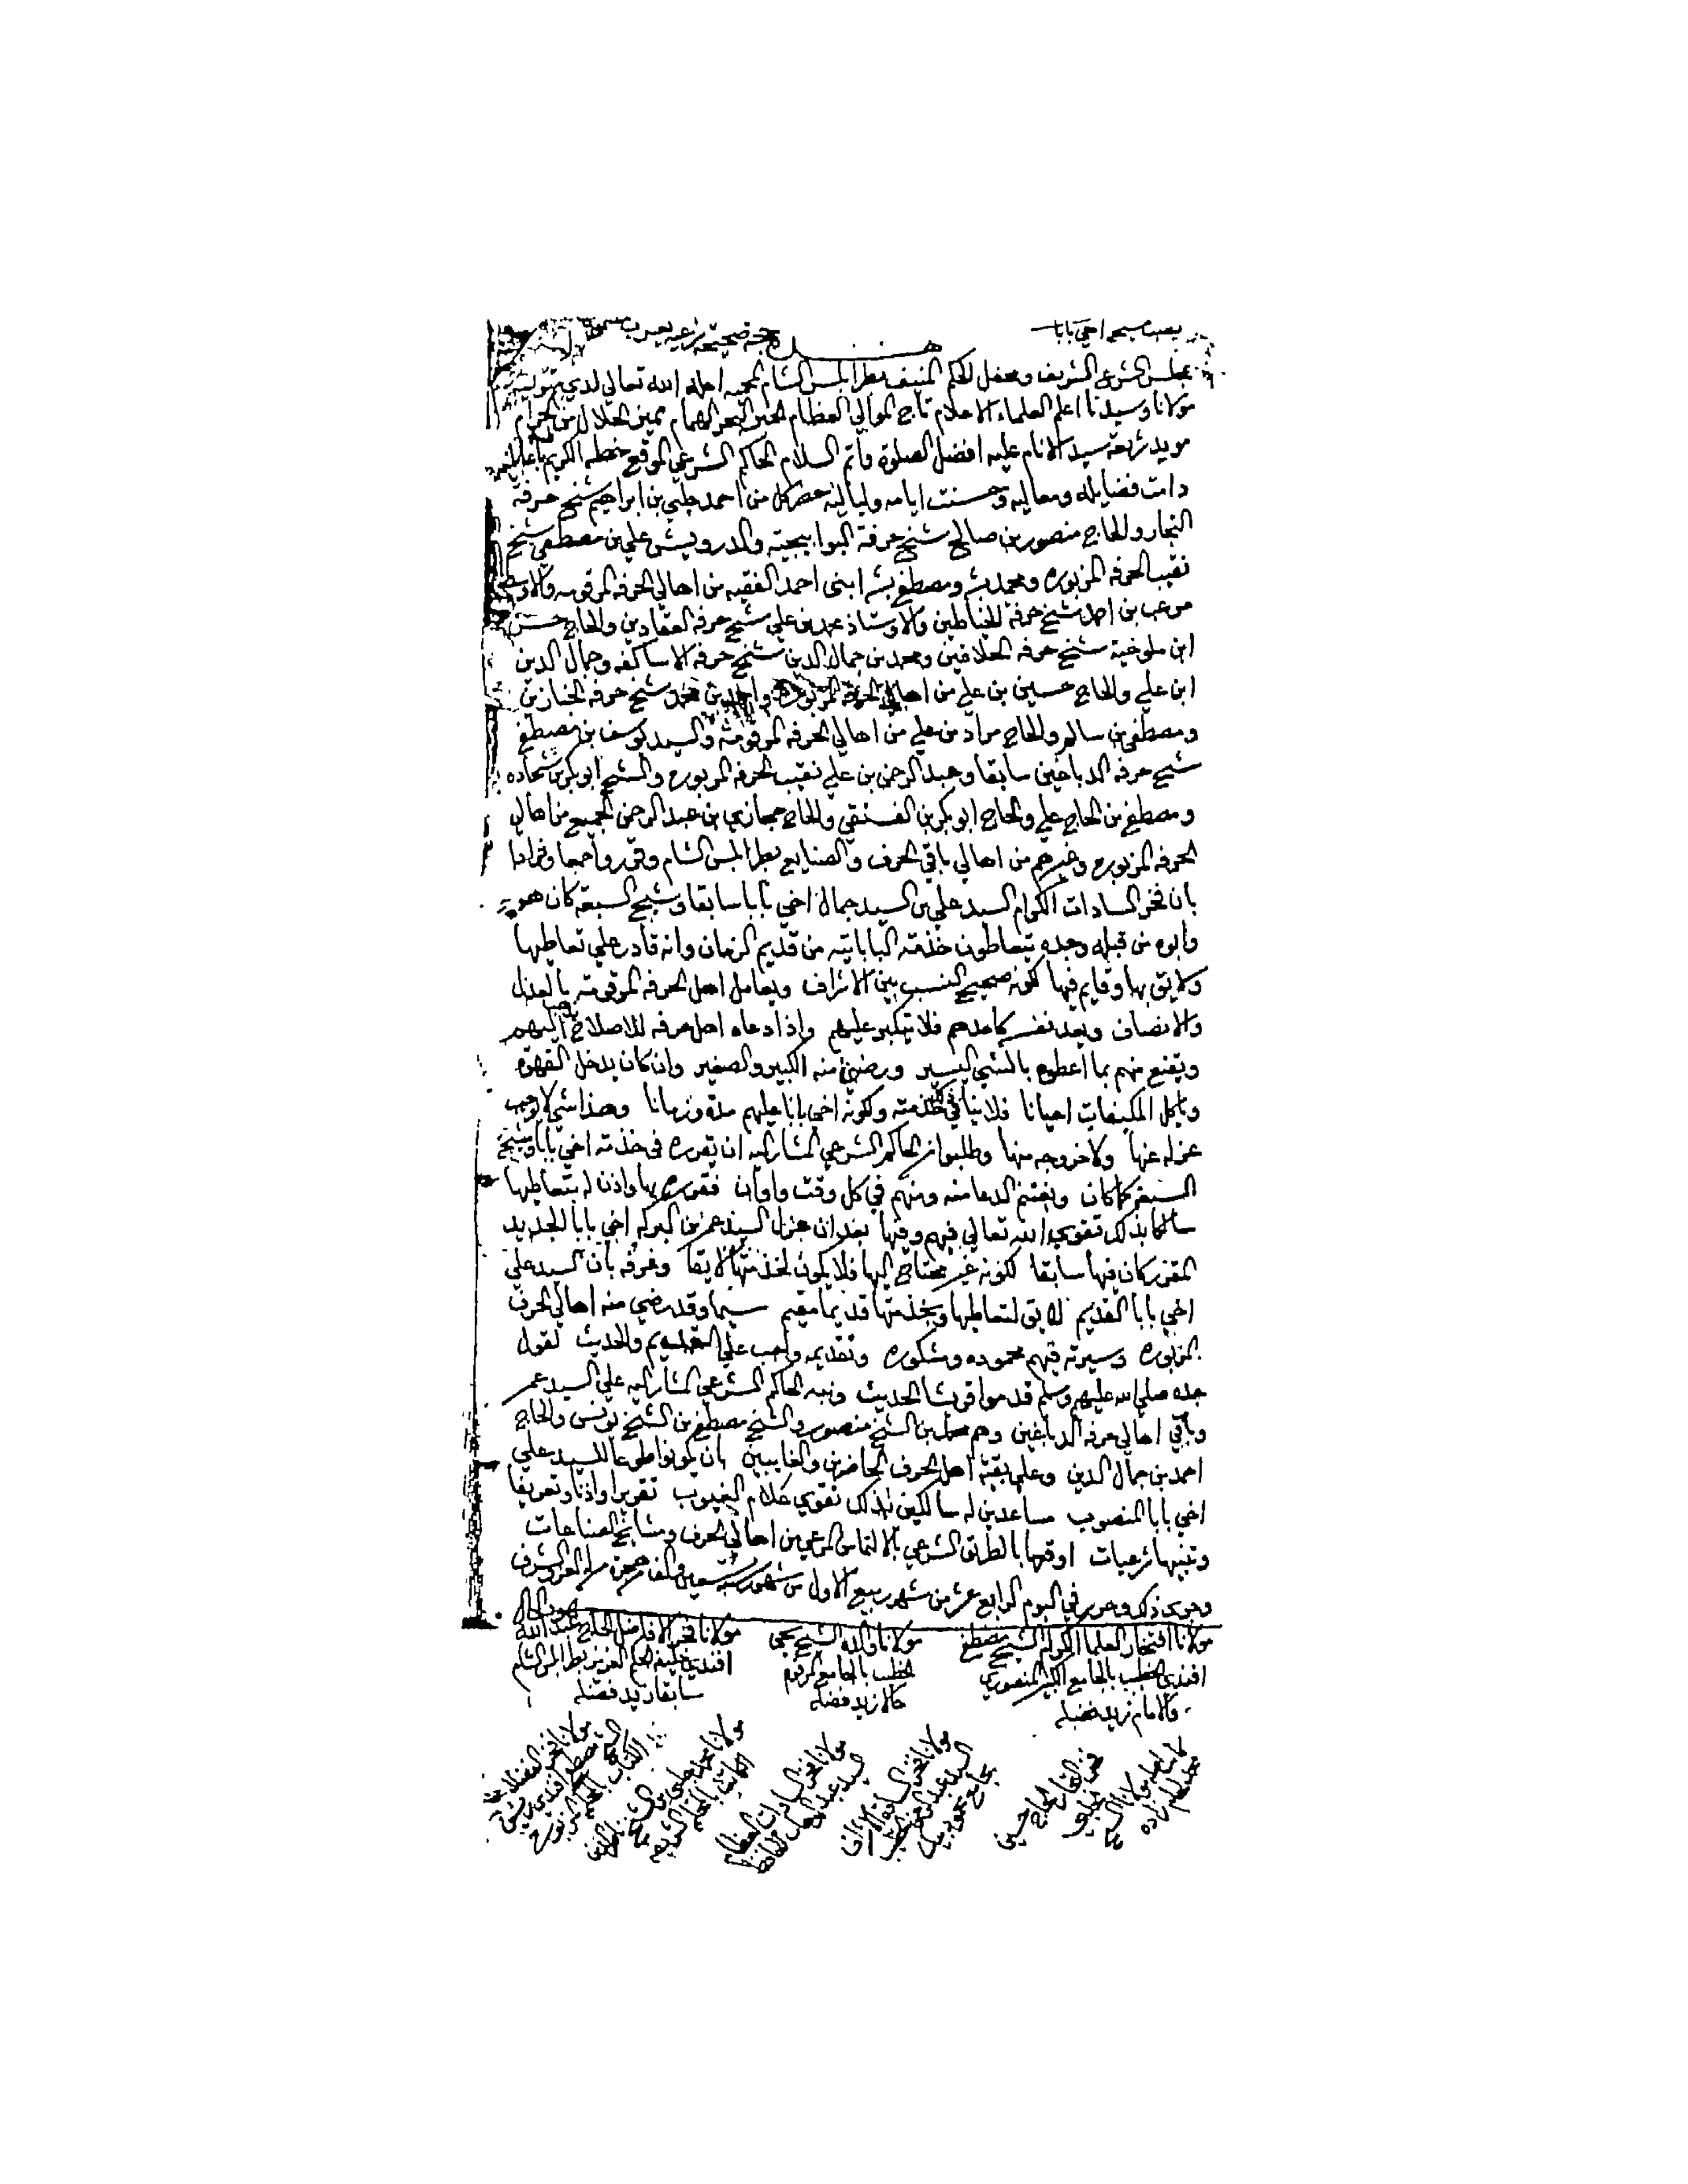 اخي بابا
هذه حجة صحيحة شرعية
بمجلس الشرع الشريف ومحفل الحكم المنيف بطرابلس الشام المحمية اجله الله تعالي لدي متوليه
مولانا وسيدنا اعلم العلماء الاعلام تاج الموالي العظام الحبر البحر الهمام مميز الحلال من الحرام
مويد شريعة سيد الانام عليه افضل الصلوة واتم السلام الحاكم الشرعي الموقع بخطه الكريم باعاليه
دامت فضايله ومعاليه وحسنت ايامه ولياليه حضر كل من احمد جلبي بن ابراهيم شيخ حرفة
التجار والحاج منصور بن صالح شيخ حرفة البوابيجية والدرويش علي بن مصطفي شيخ
نقيب الحرفه المزبوره ومحمد بشه ومصطفي بشه ابني احمد الفقيه من اهالي الحرفه المرقومه والاوسطه
مرعب بن احمد شيخ حرفة الخياطين والاوستاذ محمد بن علي شيخ حرفه العقادين والحاج حسن
ابن ملوخية شيخ حرفه الحلاقين ومحمد بن جمال الدين شيخ حرفه الاساكفه وجمال الدين
ابن علي والحاج حسين بن علي من اهالي الحرفه المزبوره واحمد بن شيخ حرفه الخبازين
ومصطفي بن سالم والحاج مراد بن علي من اهالي الحرفه المرقومة والسيد يوسف بن مصطفي
شيخ حرفه الدباغين سابقا وعبد الرحمن بن علي نقيب الحرفه المزبوره والشيخ ابو بكر بن شحاده
ومصطفي بن الحاج علي والحاج ابو بكر بن الفستقي والحاج حجازي بن عبد الرحمن الجميع من اهالي
الحرفه المزبوره وغيرهم من اهالي باقي الحرف والصنايع بطرابلس الشام وقرروا جمعا وفرادا
بان فخر السادات الكرام السيد علي بن السيد جمال اخي بابا سابقا وشيخ السبعة كان هو
وابوه من قبله وجده يتعاطون خذمة البابايية من قديم الزمان وانه قادر علي تعاطيها
ولايق بها وقايم فيها لكونه صحيح النسب بين الاشراف ويعامل اهل الحرفه المرقومة بالعدل
والانصاف ويعد نفسه كاحدهم فلا يتكبر عليهم واذا دعاه اهل حرفه للاصلاح يذهب اليهم
ويقنع منهم بما اعطوه بالشي اليسير ورضي منه الكبير والصغير وان كان يدخل القهوة
وياكل المكيفات احيانا فلا ينافي ذلك خذمته وكونه اخي بابا عليهم مدة وزمانا وهذا شي لا يوجب
عزله عنها ولا خروجه منها وطلبوا من الحاكم الشرعي المشار اليه ان يقرره في خذمة اخي بابا وشيخ
السبعة كما كان ويغتنم الدعا منه ومنهم في كل وقت واوان فقرره بها واذن له بتعاطيها
سالكا بذلك تقوي الله تعالي فيهم وفيها بعد ان عزل السيد عمر بن البركه اخي بابا الجديد
المقرر كان فيها سابقا لكونه غير محتاج اليها فلا يكون لخذمتها لايقا وعرفه بان السيد علي
اخي بابا القديم لايق لتعاطيها وبخذمتها قديما مقيم سيما وقد رضي منه اهالي الحرف
المزبوره وسيرته فيهم محموده ومشكوره وتقديمه واجب علي القديم والحديث لقول
جده صلي الله عليه وسلم قدموا قريشا الحديث ونبه الحاكم الشرعي المشار اليه علي السيد عمر
وباقي اهالي حرفه الدباغين وهم محمد بن الشيخ منصور والشيخ مصطفي بن الشيخ يونس والحاج
احمد بن جمال الدين وعلي بقية اهل الحرف الحاضرين والغايبين بان يكونوا طوعا للسيد علي
اخي بابا المنصوب مساعدين له سالكين بذلك تقوي علام الغيوب تقريرا واذنا وتعريفا
وتنبيها شرعيات اوقعها بالطريق الشرعي بالالتماس المرعي من اهالي الحرف ومشايخ الصناعات
وجري ذلك وحرر في اليوم الرابع عشر من شهر ربيع الاول من شهور سنة تسعين والف من هجرة من له العز والشرف
شهود الحال
مولانا افتخار العلما الكرام الشيخ مصطفي
افندي الخطيب بالجامع الكبير المنصوري
والامام زيد فضله
مولانا والده الشيخ يحيي
الخطيب بالجامع المرقوم
حالا زيد فضله
مولانا فخر الافاضل الحاج عبد الله
افندي خليفة الحكم العزيز بطرابلس الشام
سابقا زيد فضله
فخر الاقران الحاج حسين
مولانا فخر السادات العظام
مولانا فخر الفضلاء